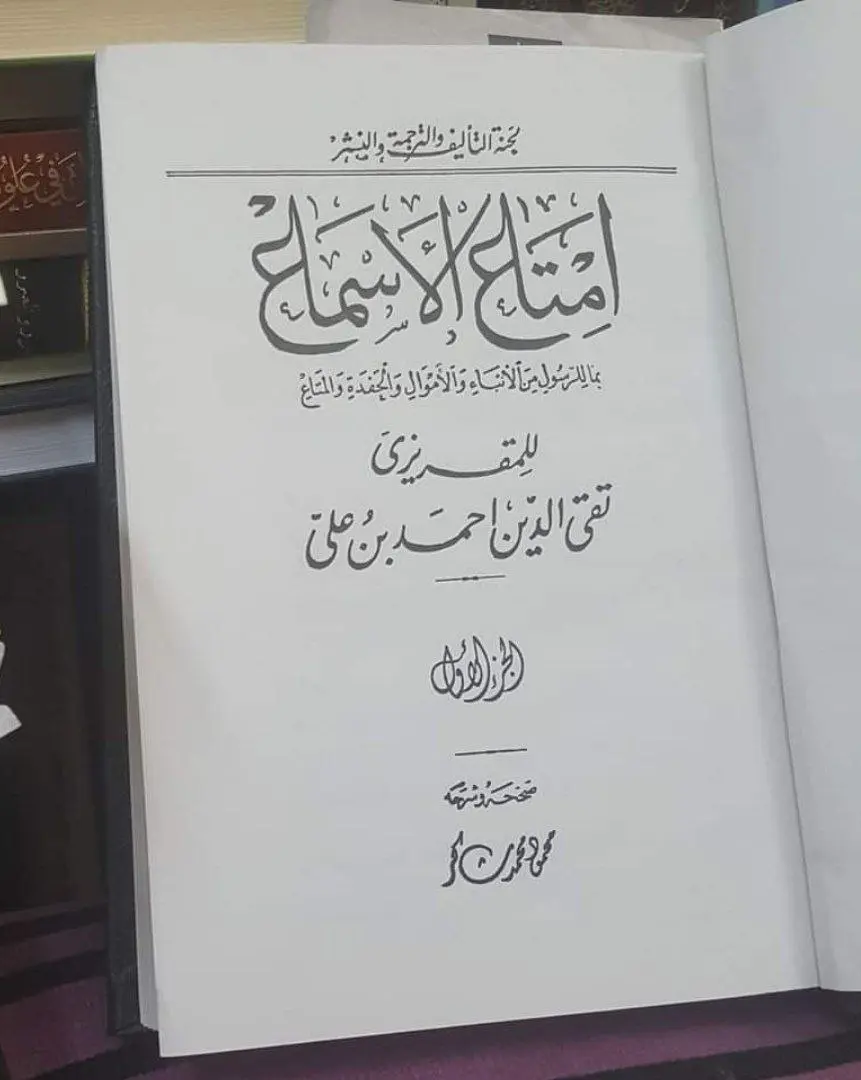 لجنة التأليف والترجمة والنشر
إمتاع الأسماع
بما للرسول من الأنباء والأموال والحفدة والمتاع
للمقريزى
تقى الدين احمد بن على
الجزء الأول
صححه وشرحه
محمود محمد شاكر
فى علوم